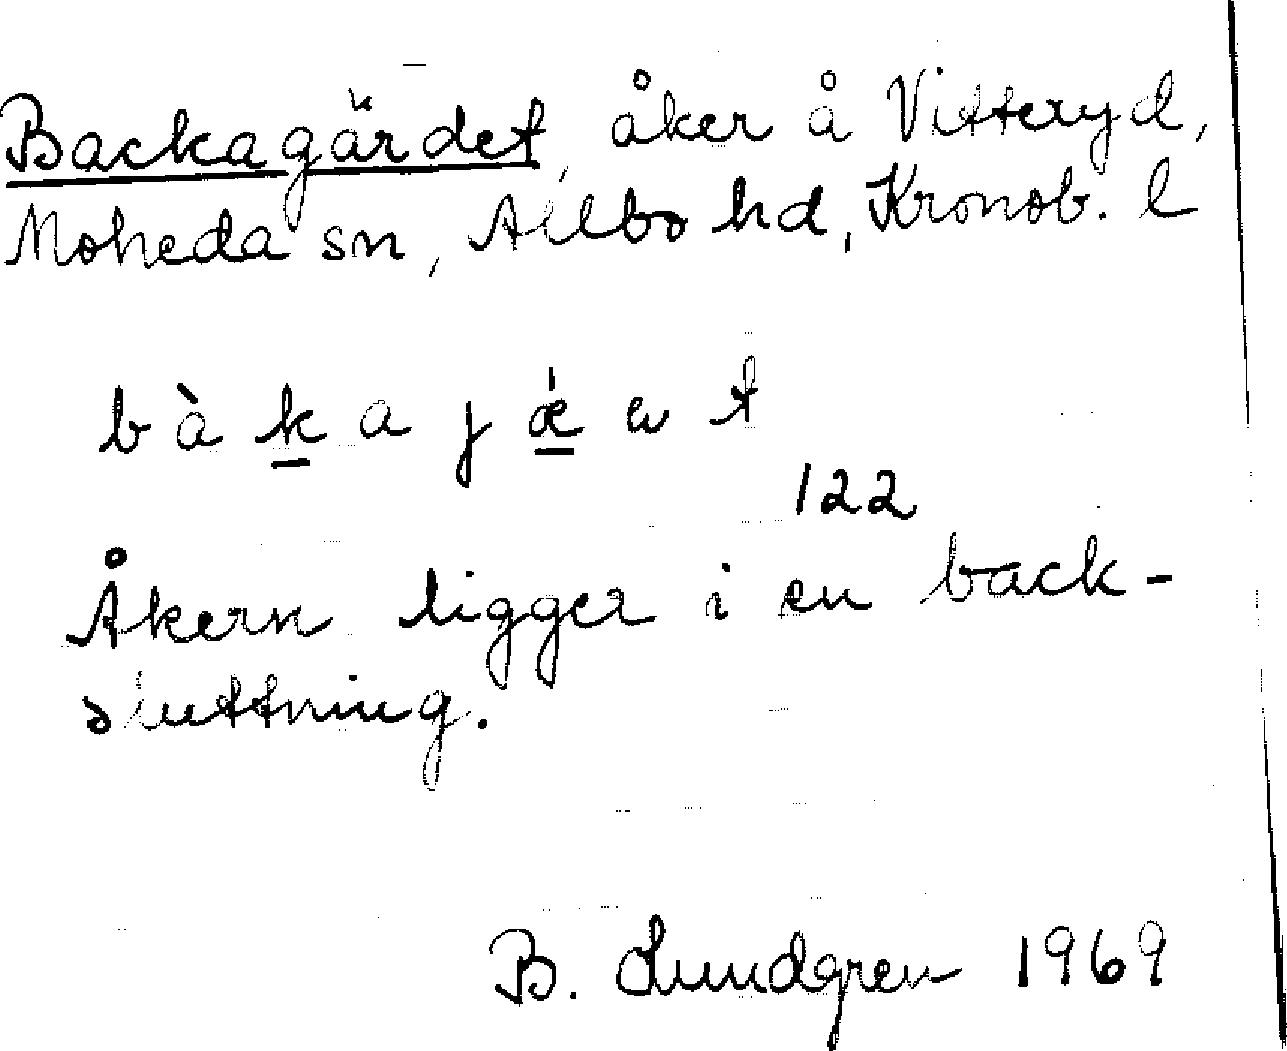 Backagärdet, åker å Vitteryd,
Moheda sn, Allbo hd, Kronob. l
bàkajǽat
122
Åkern ligger i en back-
sluttning.
B. Lundgren 1969